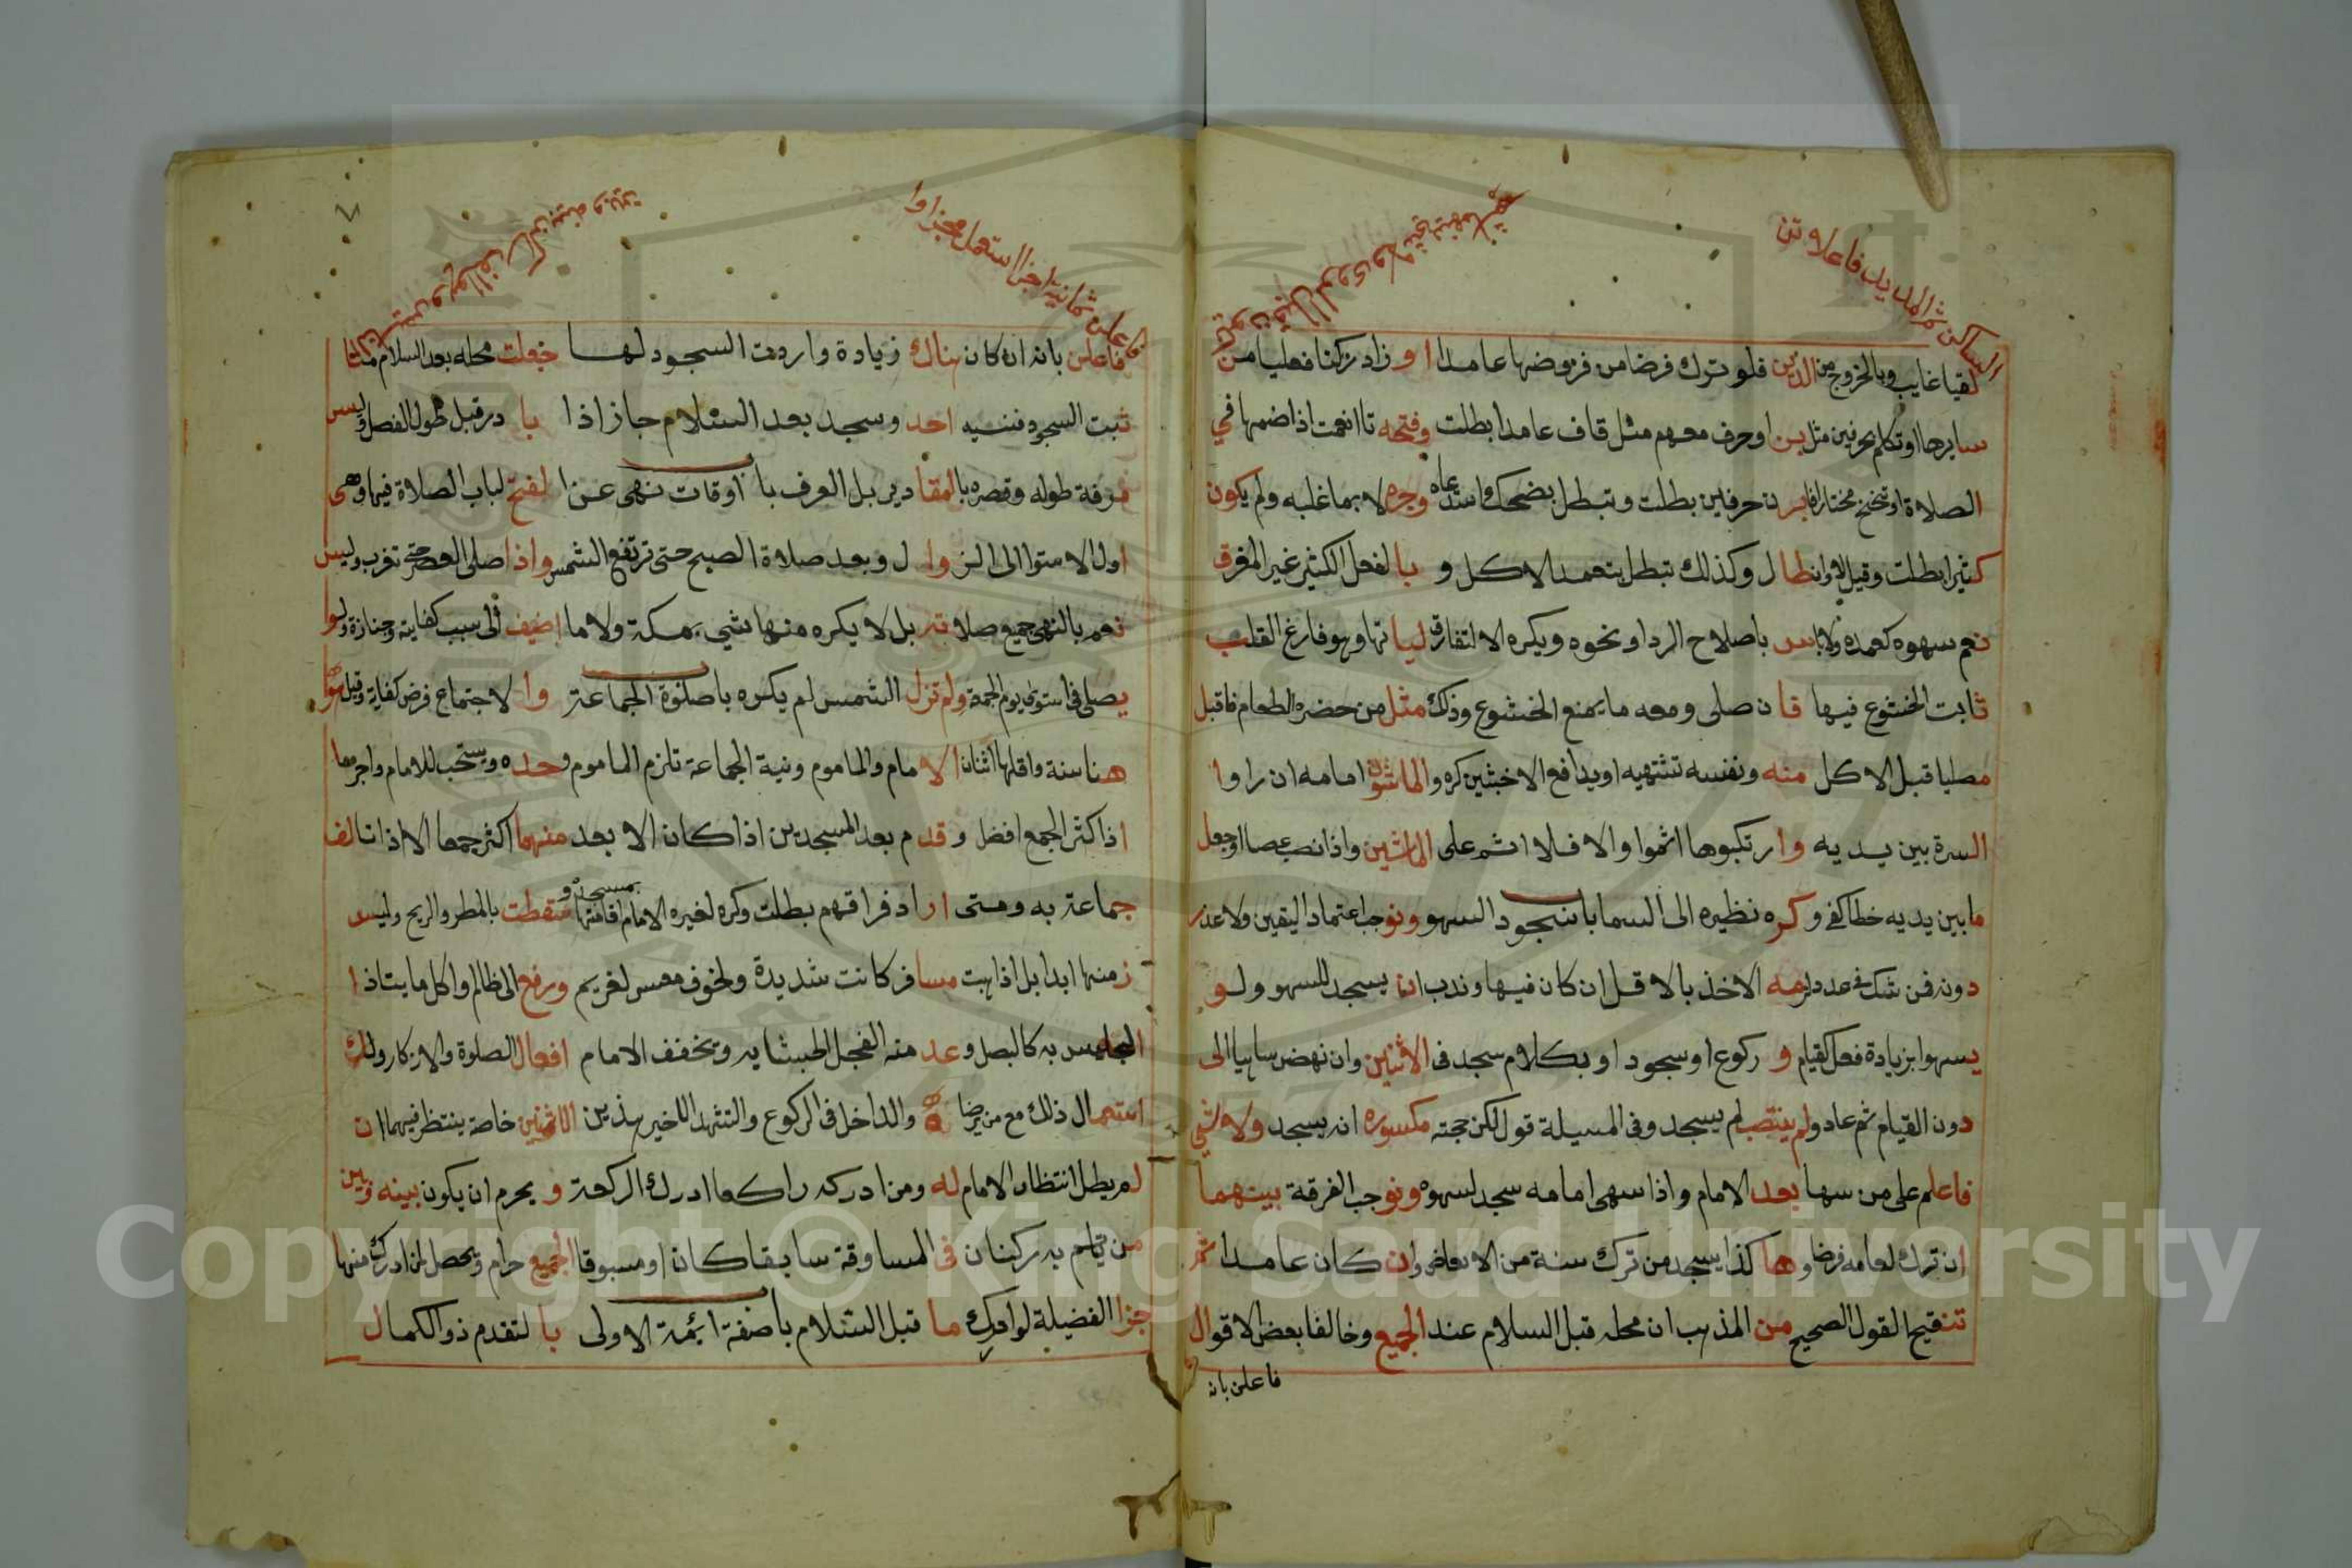 الساكن ثم المديد فاعلاتن
لقيا غايب وبالخروج من الدين فلو ترك فرضا من فروضها عامدا او زاد ركنا فعليا من
سايرها او تكلم بحرفين مثل بن او حرف مفهم مثل قاف عامدا بطلت وفتحه تا انعمت اذا ضمها في
الصلاة او تنحنح مختارا فابرن حرفين بطلت وتبطل بضحك وجره لا بما غلبه ولم يكون
كثيرا بطلت وقيل لا وان طال وكذلك تبطل بتعمد الاكل و بالفعل الكثير غير المفرق
نعم سهوه كعمده ولا باس باصلاح الردا ونحوه ويكره الالتفات فليأتها وهو فارغ القلب
ثابت الخشوع فيها فان صلى ومعه ما يمنع الخشوع وذلك مثل من حضره الطعام فاقبل
مصليا قبل الاكل منه ونفسه تشتهيه او يدافع الاخبثين كره والماشون امامه ان راوا
السترة بين يديه وارتكبوها اثموا والا فلا اثم على الماشين واذا نصب عصا او جعل
ما بين يديه خطا كفى وكره نظيره الى السما باب سجود السهو ونوجب اعتماد اليقين ولا عذر
دونه فمن شك في عدد لزمه الاخذ بالاقل ان كان فيها وندب ان يسجد للسهو ولو
يسهوا بزيادة فعل كقيام و ركوع او سجود او بكلام سجد في الاثنين وان نهض ساهيا الى
دون القيام ثم عاد ولم ينتصب لم يسجد وفي المسيلة قول لكن حجته مكسوره انه يسجد ولا شي
فاعلم على من سها بعد الامام واذا سهى امامه سجد لسهوه ونوجب الفرقة بينهما
ان ترك امامه فرضا وهاكذا يسجد من ترك سنة من الابعاض وان كان عامدا ثم
تنقيح القول الصحيح من المذهب ان محله قبل السلام عند الجميع وخالفا بعض الاقوال
فاعلن بانه
ثمانية اجزا استعمل مجزاوا
فاعلن بانه ان كان هناك زيادة واردت السجود لها جعلت محله بعد السلام
ثبت السجود فنسيه احد وسجد بعد السلام جاز اذا با در قبل طول الفصل وليس
فرقة طوله وقصره بالمقادير بل العرف باب اوقات نهى عن الفتح لباب الصلاة فيها وهى
اول الاستوا الى الزوال وبعد صلاة الصبح حتى ترتفع الشمس واذا صلى العصر حتى تغرب وليس
نعم بالنهي جميع صلاته بل لا يكره منها شي بمكة ولا ما اضيف الى سبب كفايتة وجنازة ولو
يصلى في استوى يوم الجمعة ولم تزل الشمس لم يكره باب صلوة الجماعة والاجتماع فرض كفاية وقيل
هنا سنة واقلها اثنان الامام والماموم ونية الجماعة تلزم الماموم وحده ويستحب للامام واجرها
اذا كثر الجمع افضل وقدم بعد المسجدين اذا كان الابعد منهما اكثر جمعا الا اذا تالف
جماعة به ومتى اراد فراقهم بطلت وكره لغيره الامام اقامتها بمسجده وسقطت بالمطر والريح وليس
زمنها ابدا بل اذا هبت مسافر كانت شديدة ولخوف معسر لغريم ورفع الى ظالم واكل ما يتاذا
الجليس به كالبصل وعد منه الفجل لجشايه ويخفف الامام افعال الصلوة والاذكار ولك
استعمال ذلك مع من يرضا به والداخل في الركوع والتشهد الاخير هذين الاثنين خاصة ينتظر فيهما ان
لم يطل انتظار الامام له ومن ادركه راكعا ادرك الركعة و يحرم ان يكون بينه وبين
من ياتم به ركنان في المساوقة سابقا كان او مسبوقا الجميع حرام ويحصل لمن ادرك منها
جزا الفضيلة لو ادرك ما قبل السلام باب صفة ائمة الاولى بالتقدم ذو الكمال